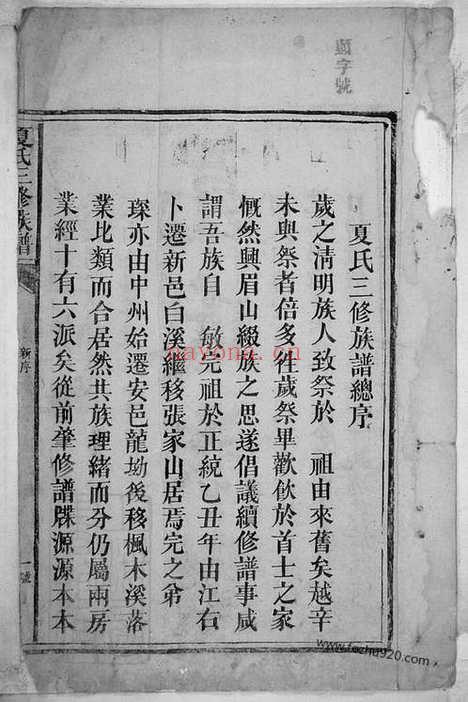 頭字號
夏氏三修族譜總序
歲之清明族人致祭於 祖由來舊矣越辛
未與祭者倍多往歲祭畢歡飲於首士之家
慨然興眉山綴族之思遂倡議續修譜事咸
謂吾族自 敏完祖於正統乙丑年由江右
卜遷新邑白溪繼移張家山居焉完之弟
琛亦由中州始遷安邑龍坳後移楓木溪落
業比類而合居然共族理緒而分仍屬兩房
業經十有六派矣從前肇修譜牒源源本本
夏氏三修族譜
新序
一號
nayona.cn
www.fozhu920.com